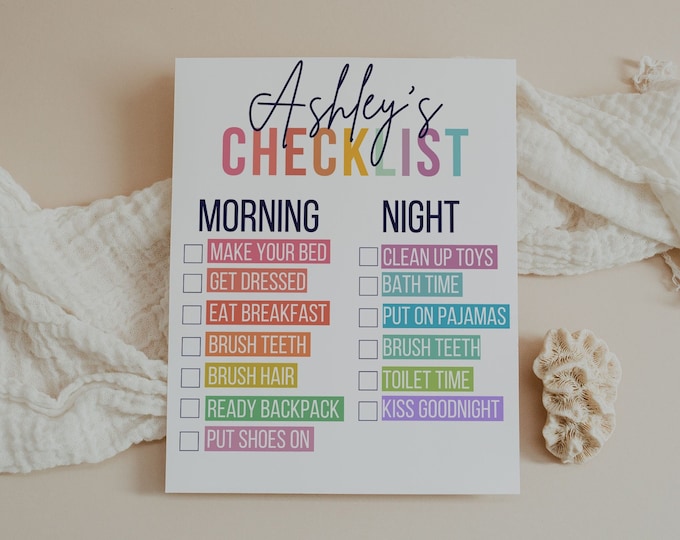 Ashley's
CHECKLIST
MORNING
MAKE YOUR BED
GET DRESSED
EAT BREAKFAST
BRUSH TEETH
BRUSH HAIR
READY BACKPACK
PUT SHOES ON
NIGHT
CLEAN UP TOYS
BATH TIME
PUT ON PAJAMAS
BRUSH TEETH
TOILET TIME
KISS GOODNIGHT